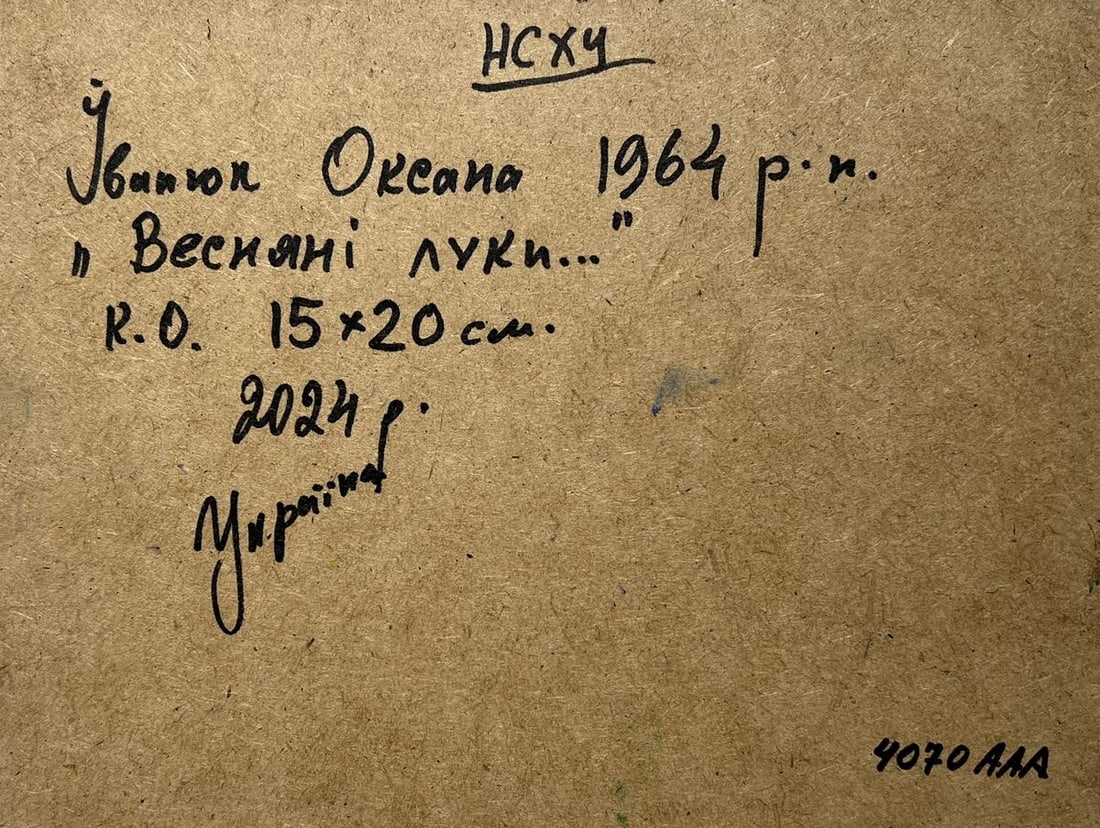 НСХУ
Іванюк Оксана 1964 р.н.
„Весняні луки..."
К.О. 15×20 см.
2024 р.
Україна
4070 ААА